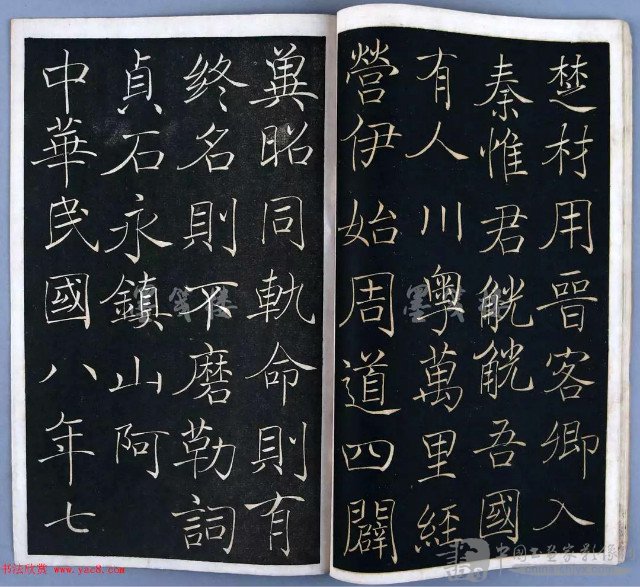 楚材用晉客卿入
秦惟君觥觥吾國
有人川粵萬里經
營伊始周道四闢
冀昭同軌命則有
終名則不磨勒詞
貞石永鎮山阿
中華民國八年七
书法欣赏 www.yac8.com